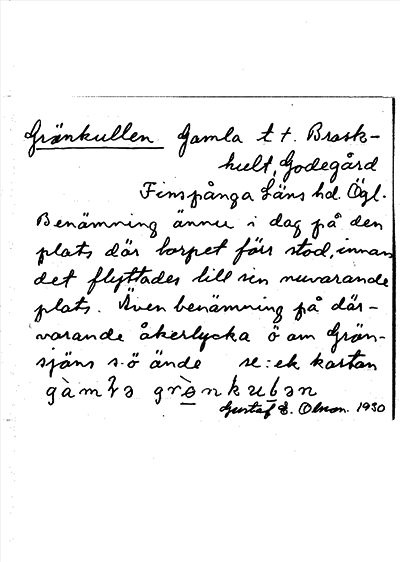 Gränkullen Gamla t t. Brask-
hult, Godegård
Finspånga Läns hd. Ögl.
Benämning ännu i dag på den
plats där torpet förr stod, innan
det flyttades till sin nuvarande
plats. Även benämning på där-
varande åkerlycka ö om Grän-
sjöns s.ö ände se: ek kartan
gàmɫə
Gustaf E. Olson. 1930